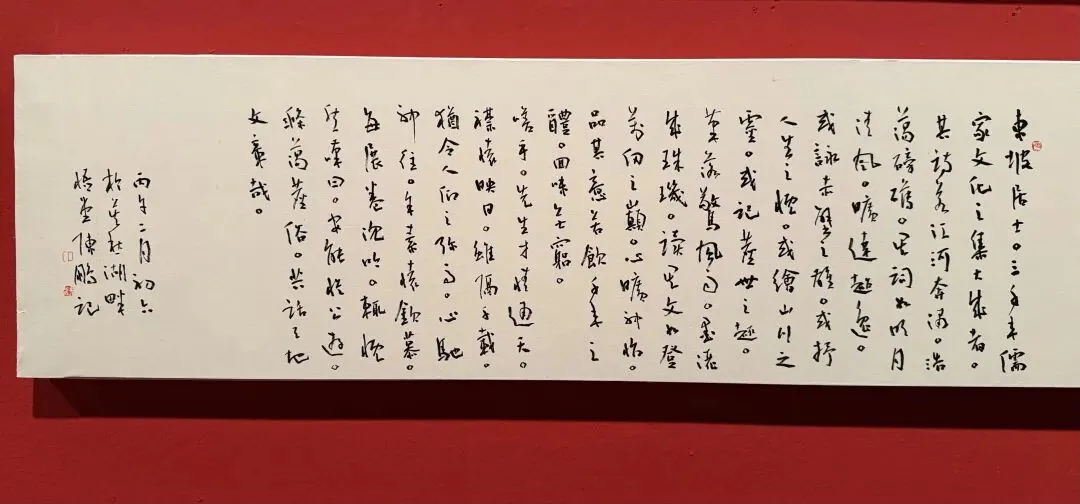 東坡居士。三千年儒
家文化之集大成者。
其詩若江河奔濤。浩
蕩磅礴。其詞如明月
清風。曠達超逸。
或詠赤壁之雄。或抒
人生之慨。或繪山川之
靈。或記塵世之趣。
筆落驚風雨。墨灑
成珠璣。讀其文如登
萬仞之巔。心曠神怡。
品其意若飲千年之
醴。回味無窮。
嗟乎。先生才情通天。
襟懷映日。雖隔千載。
猶令人仰之弥高。心馳
神往。余素懷欽慕。
每展卷沈吟。輒慨
然嘆曰。安能從公遊。
滌蕩塵俗。共話天地
文章哉。
丙午二月初六
於 湖畔
陳鵬記